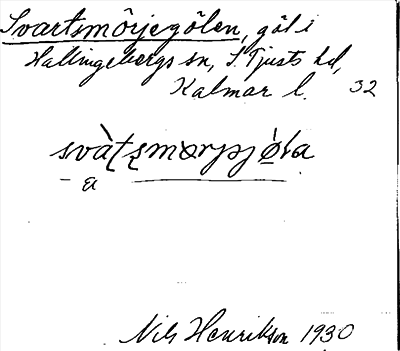 Svartsmörjegölen, göl i
Hallingebergs sn, S. Tjusts hd,
Kalmar l. 32
a
Nils Henrikson 1930